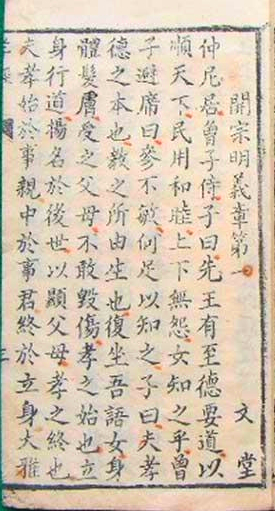 開宗明義章第一 文堂
仲尼居曾子侍子曰先王有至德要道以
順天下民用和睦上下無怨女知之乎曾
子避席曰參不敏何足以知之子曰夫孝
德之本也教之所由生也復坐吾語女身
體髮膚受之父母不敢毀傷孝之始也立
身行道揚名於後世以顯父母孝之終也
夫孝始於事親中於事君終於立身大雅